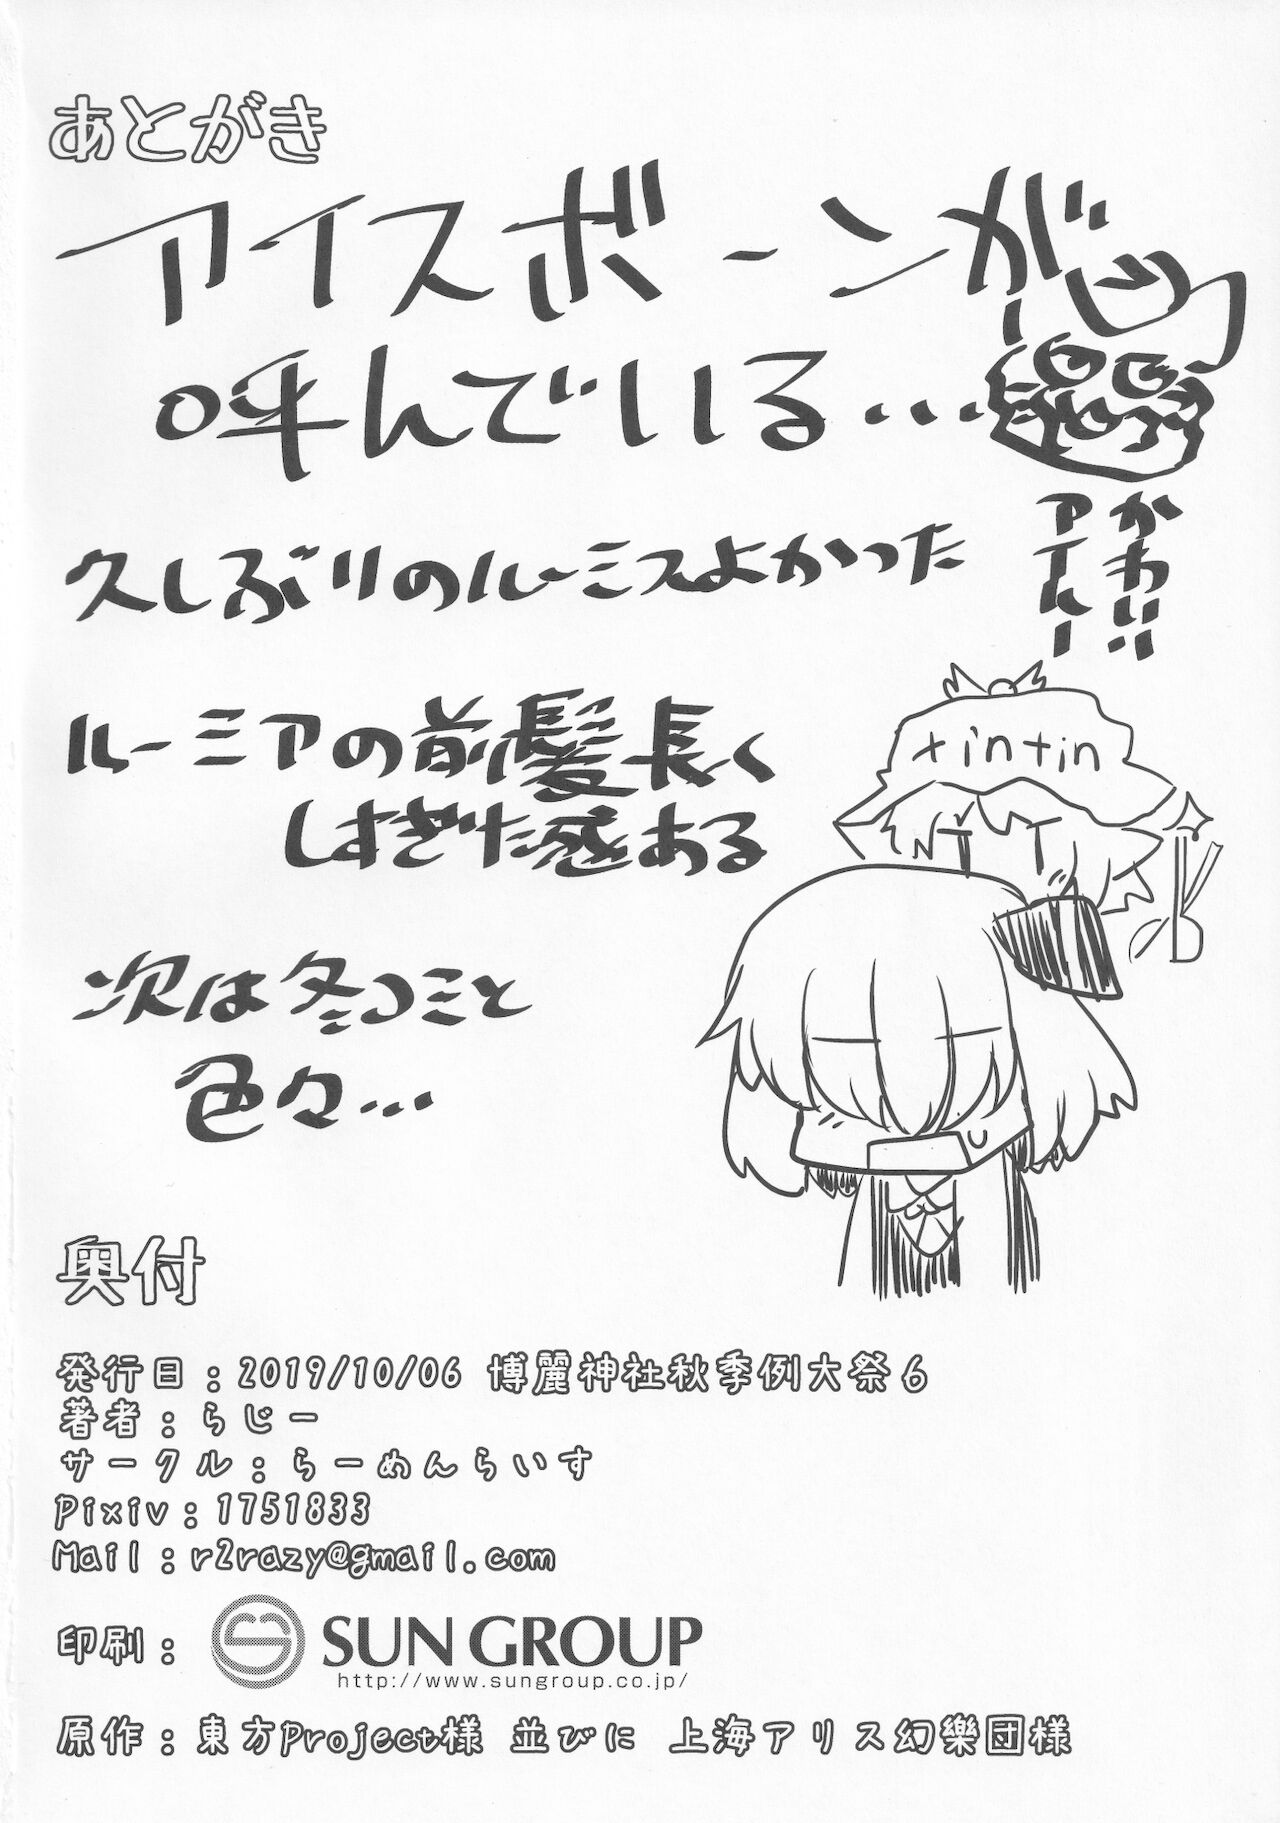 あとがき
アイスボーンが
呼んでいる…
かわいい!!
アイルー
久しぶりのルーミスよかった
ルーミアの前髪長く
しすぎた感ある
tintin
次は冬コミと
色々…
奥付
発行日：2019/10/06 博麗神社秋季例大祭6
著者：らじー
サークル：らーめんらいす
Pixiv：1751833
Mail：r2razy@gmail.com
印刷：SUN GROUP
http://www.sungroup.co.jp/
原作：東方Project様 並びに 上海アリス幻樂団様